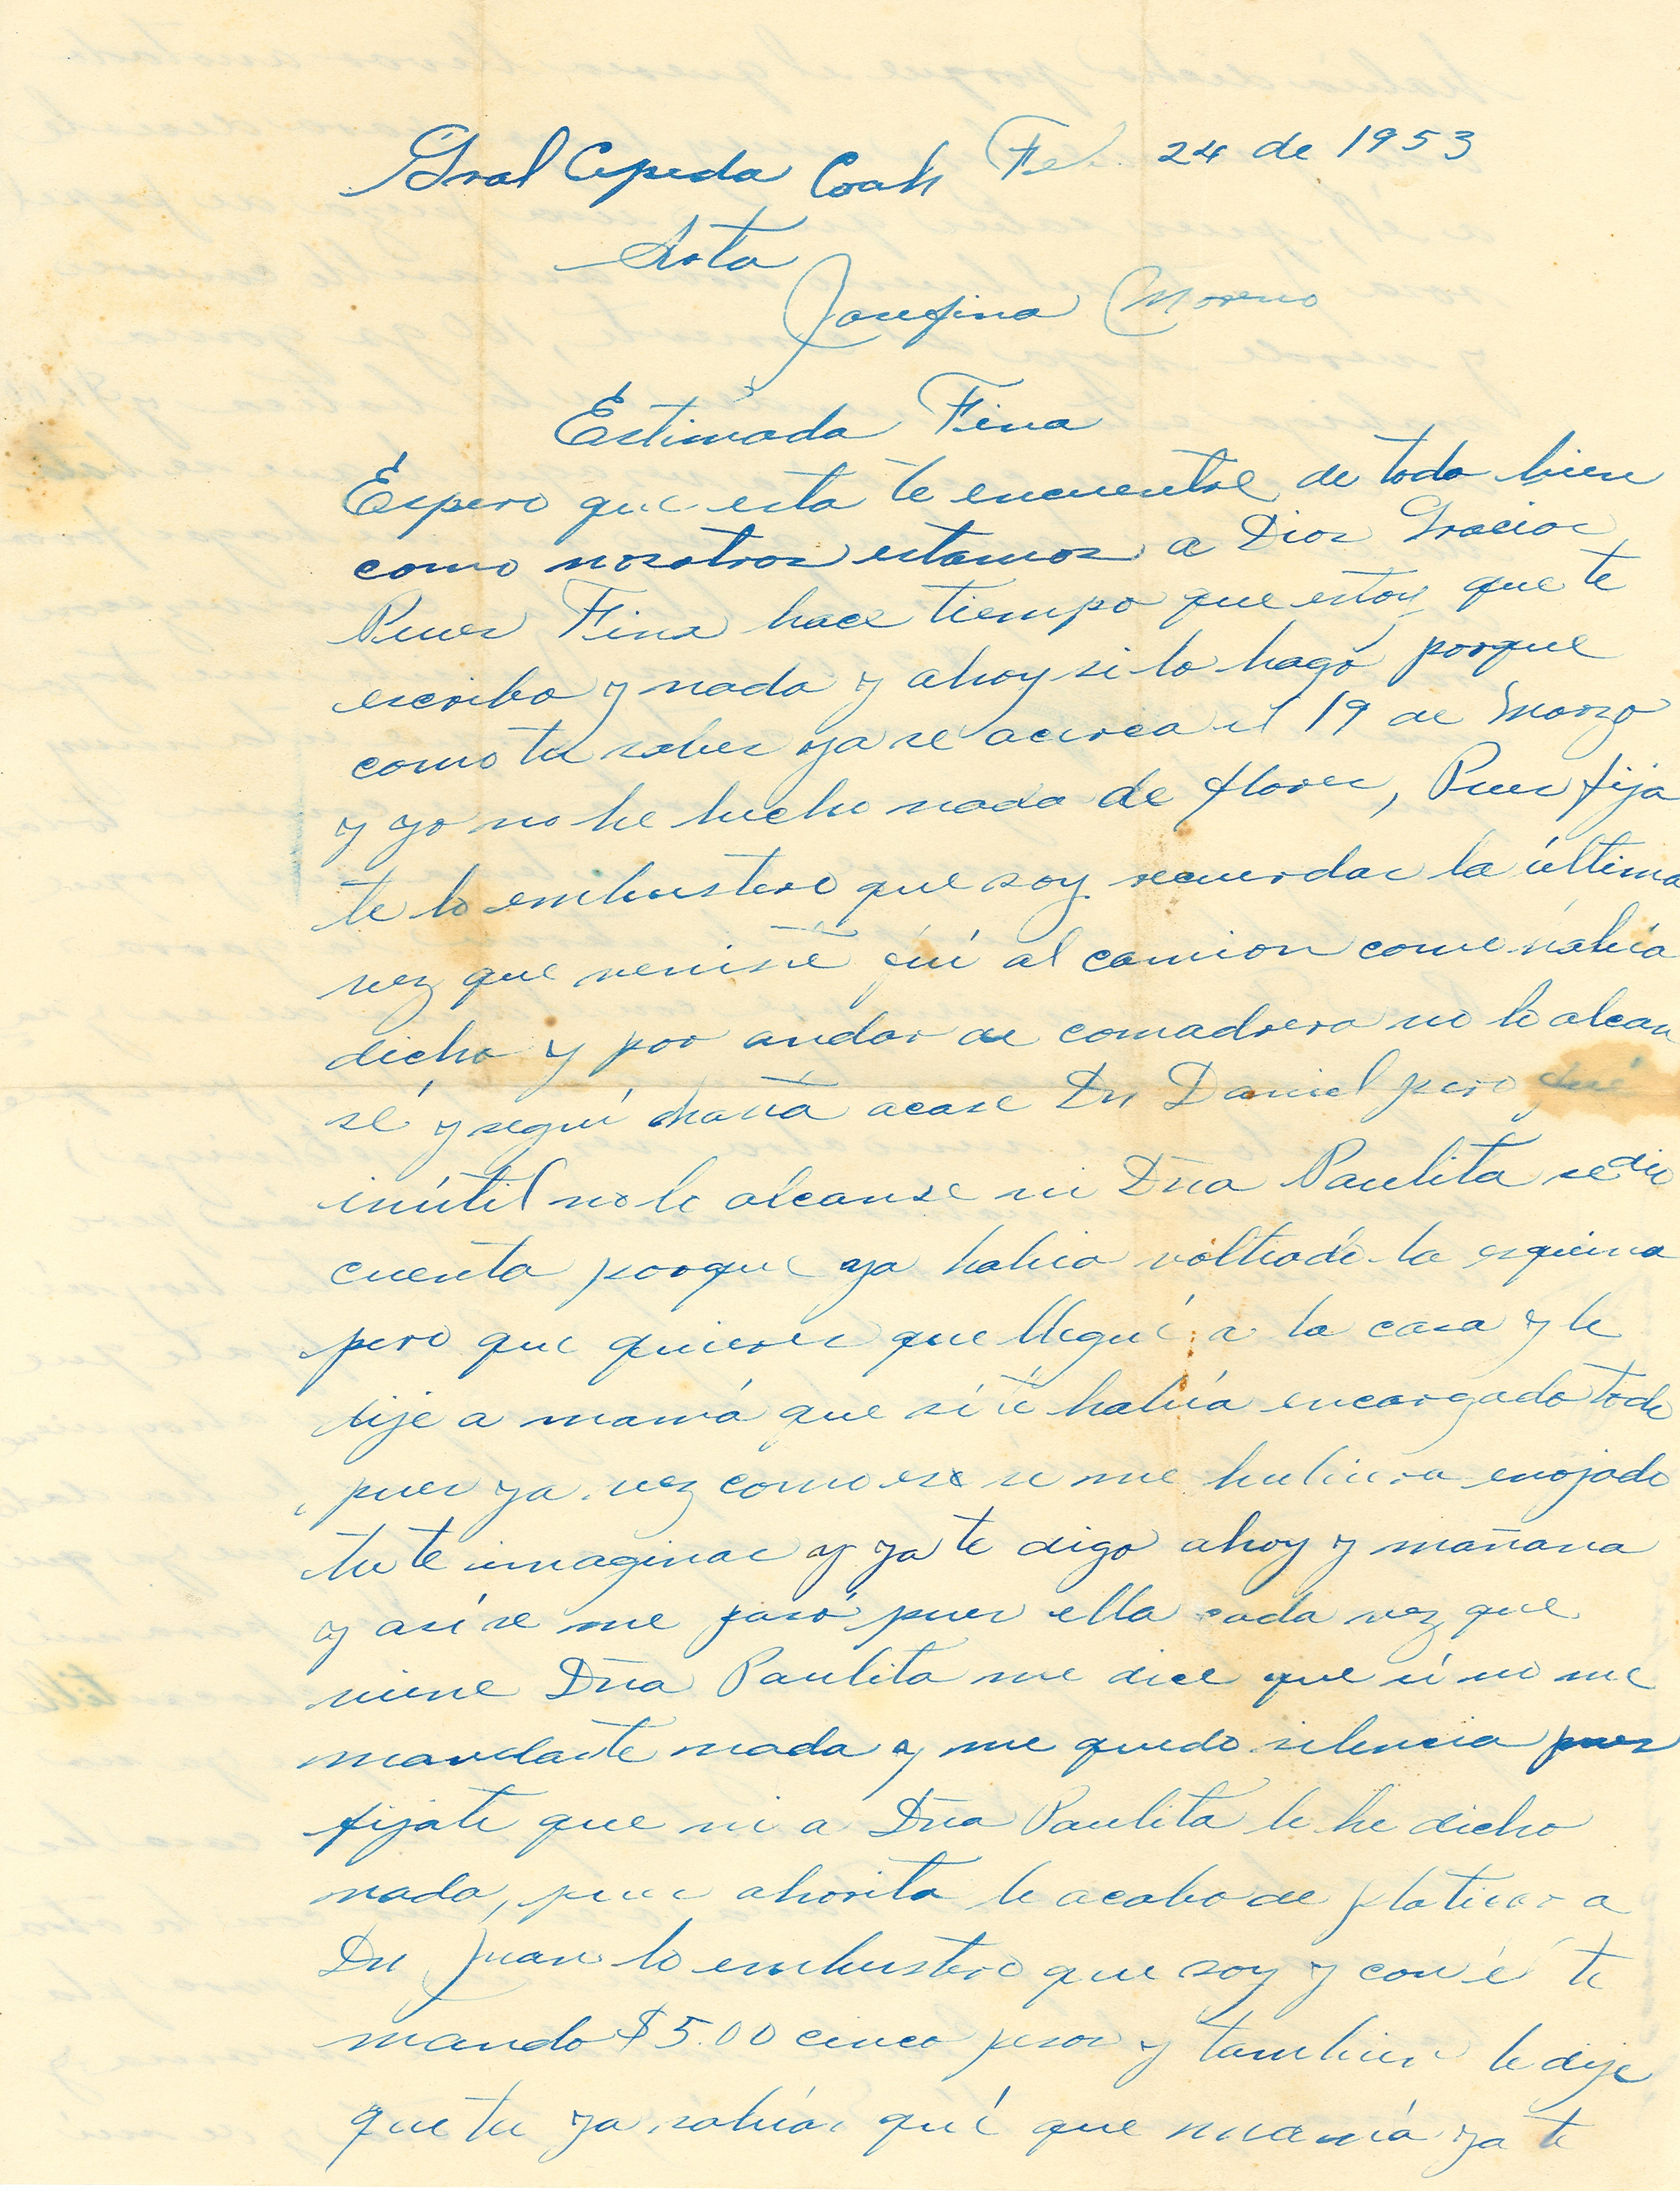 Gral Cepeda Coah Feb. 24 de 1953
Srta
Josefina Moreno
Estimada Fina
Espero que esta te encuentre de todo bien
como nosotros estamos a Dios Gracias
Pues Fina hace tiempo que estoy que te
escribo y nada y ahoy si lo hago porque
como tu sabes ya se acerca el 19 de Marzo
y yo no he hecho nada de flores, Pues fija
te lo embustero que soy recuerdas la última
vez que veniste fuí al camion come había
dicho y por andar de comadrera no lo alcan
sé y seguí hasta acase Dn Daniel pero fué
inútil no lo alcanse ni Dña Paulita se dio
cuenta porque ya había voltiado la esquina
pero que quieres que llegué a la casa y le
dije a mamá que sí te había encargado todo
pues ya vez como es se me hubiera enojado
tu te imaginas y ya te digo ahoy y mañana
y así se me pasó pues ella cada vez que
viene Dña Paulita me dice que si no me
mandaste nada y me quedo silencia pues
fijate que ni a Dña Paulita le he dicho
nada, pues ahorita le acabo de platicar a
Dn Juan lo embustero que soy y con él te
mando $5.00 cinco pesos y tambien le dije
que tu ya sabías qué que mamá ya te